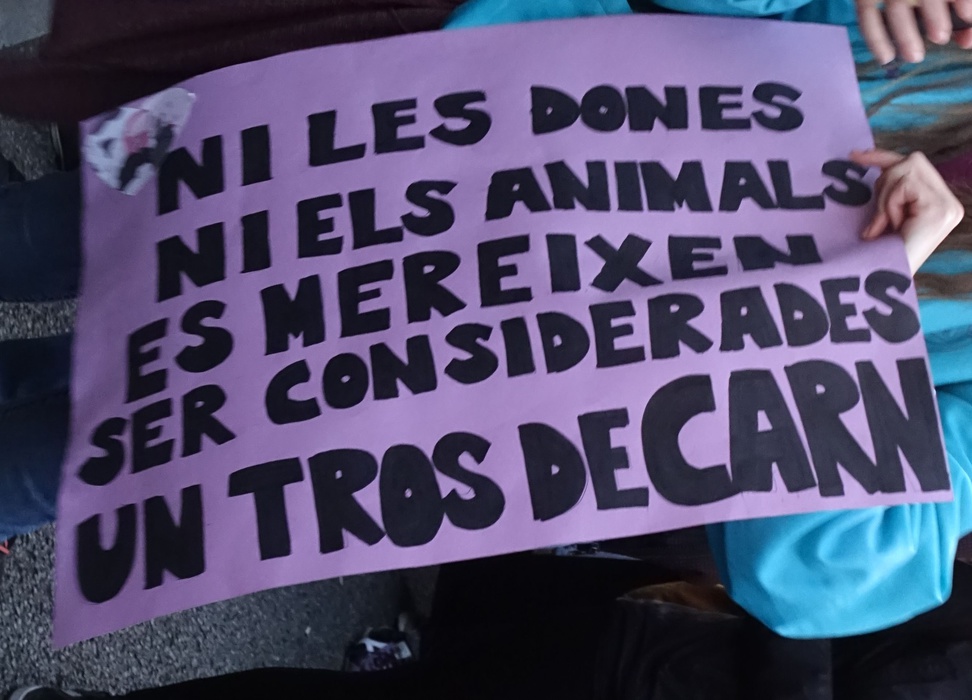 NI LES DONES
NI ELS ANIMALS
ES MEREIXEN
SER CONSIDERADES
UN TROS DE CARN